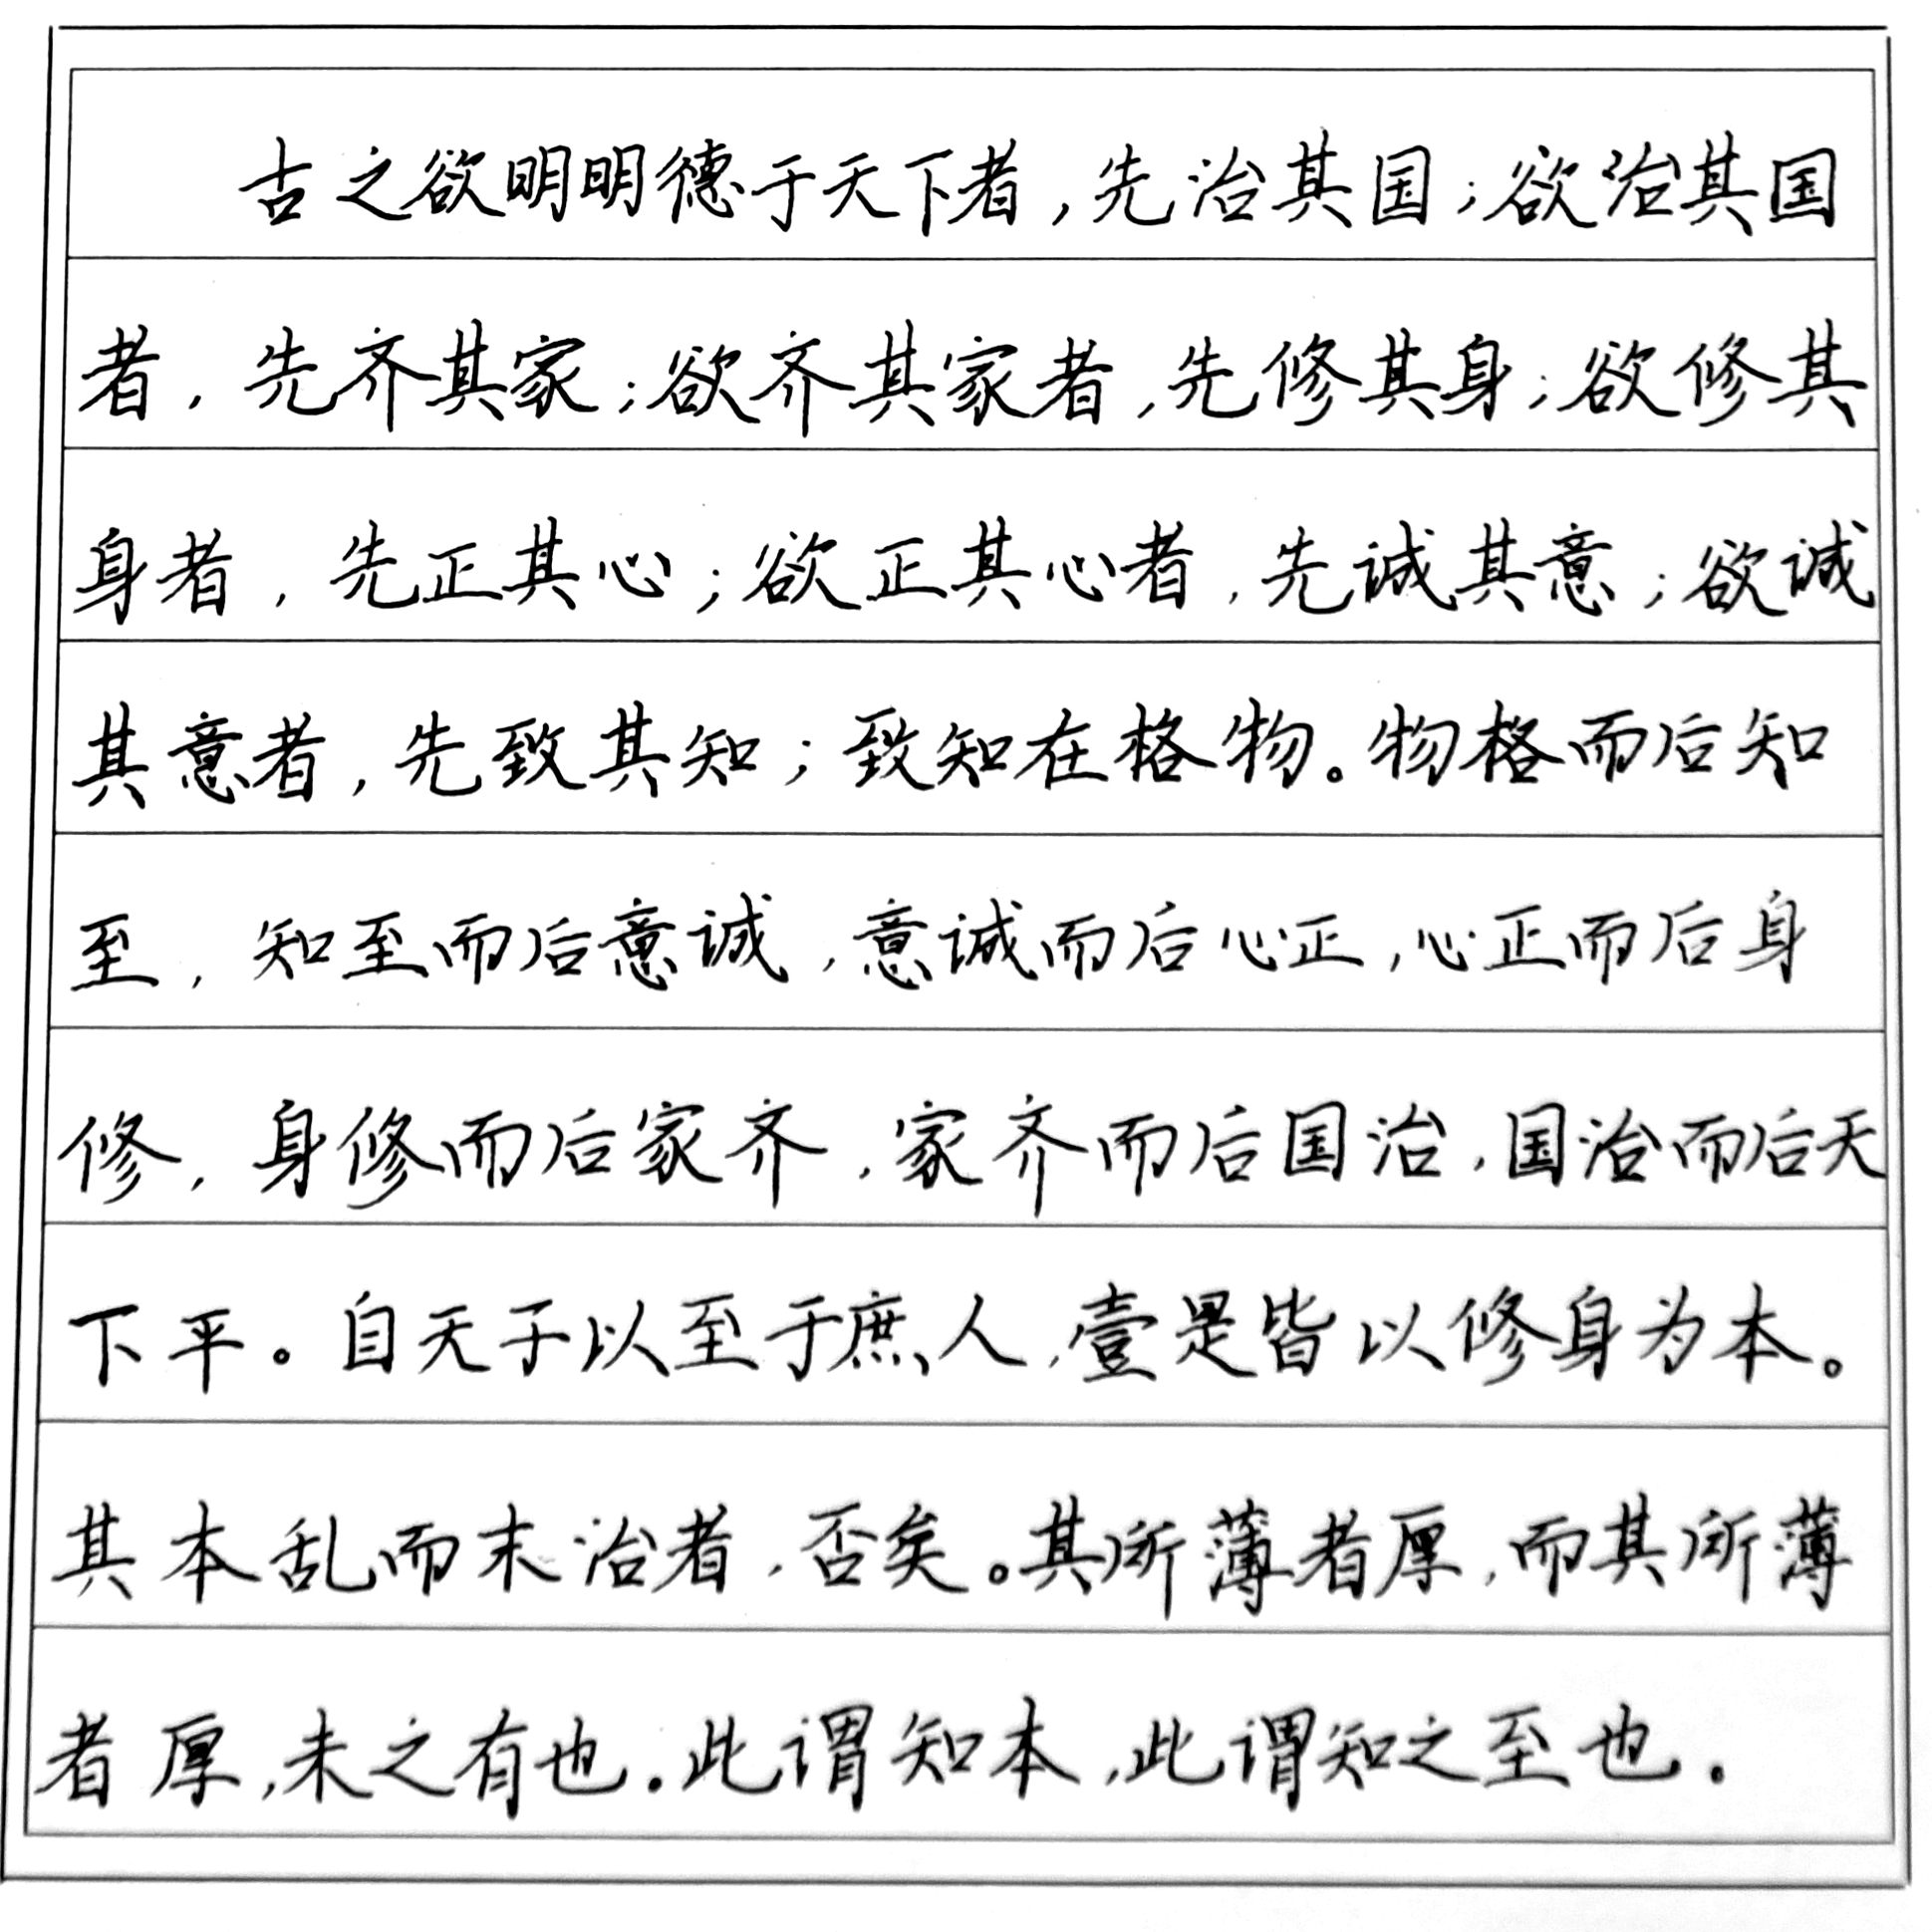 古之欲明明德于天下者，先治其国；欲治其国
者，先齐其家；欲齐其家者，先修其身；欲修其
身者，先正其心；欲正其心者，先诚其意；欲诚
其意者，先致其知；致知在格物。物格而后知
至，知至而后意诚，意诚而后心正，心正而后身
修，身修而后家齐，家齐而后国治，国治而后天
下平。自天子以至于庶人，壹是皆以修身为本。
其本乱而末治者，否矣。其所薄者厚，而其所薄
者厚，未之有也。此谓知本，此谓知之至也。